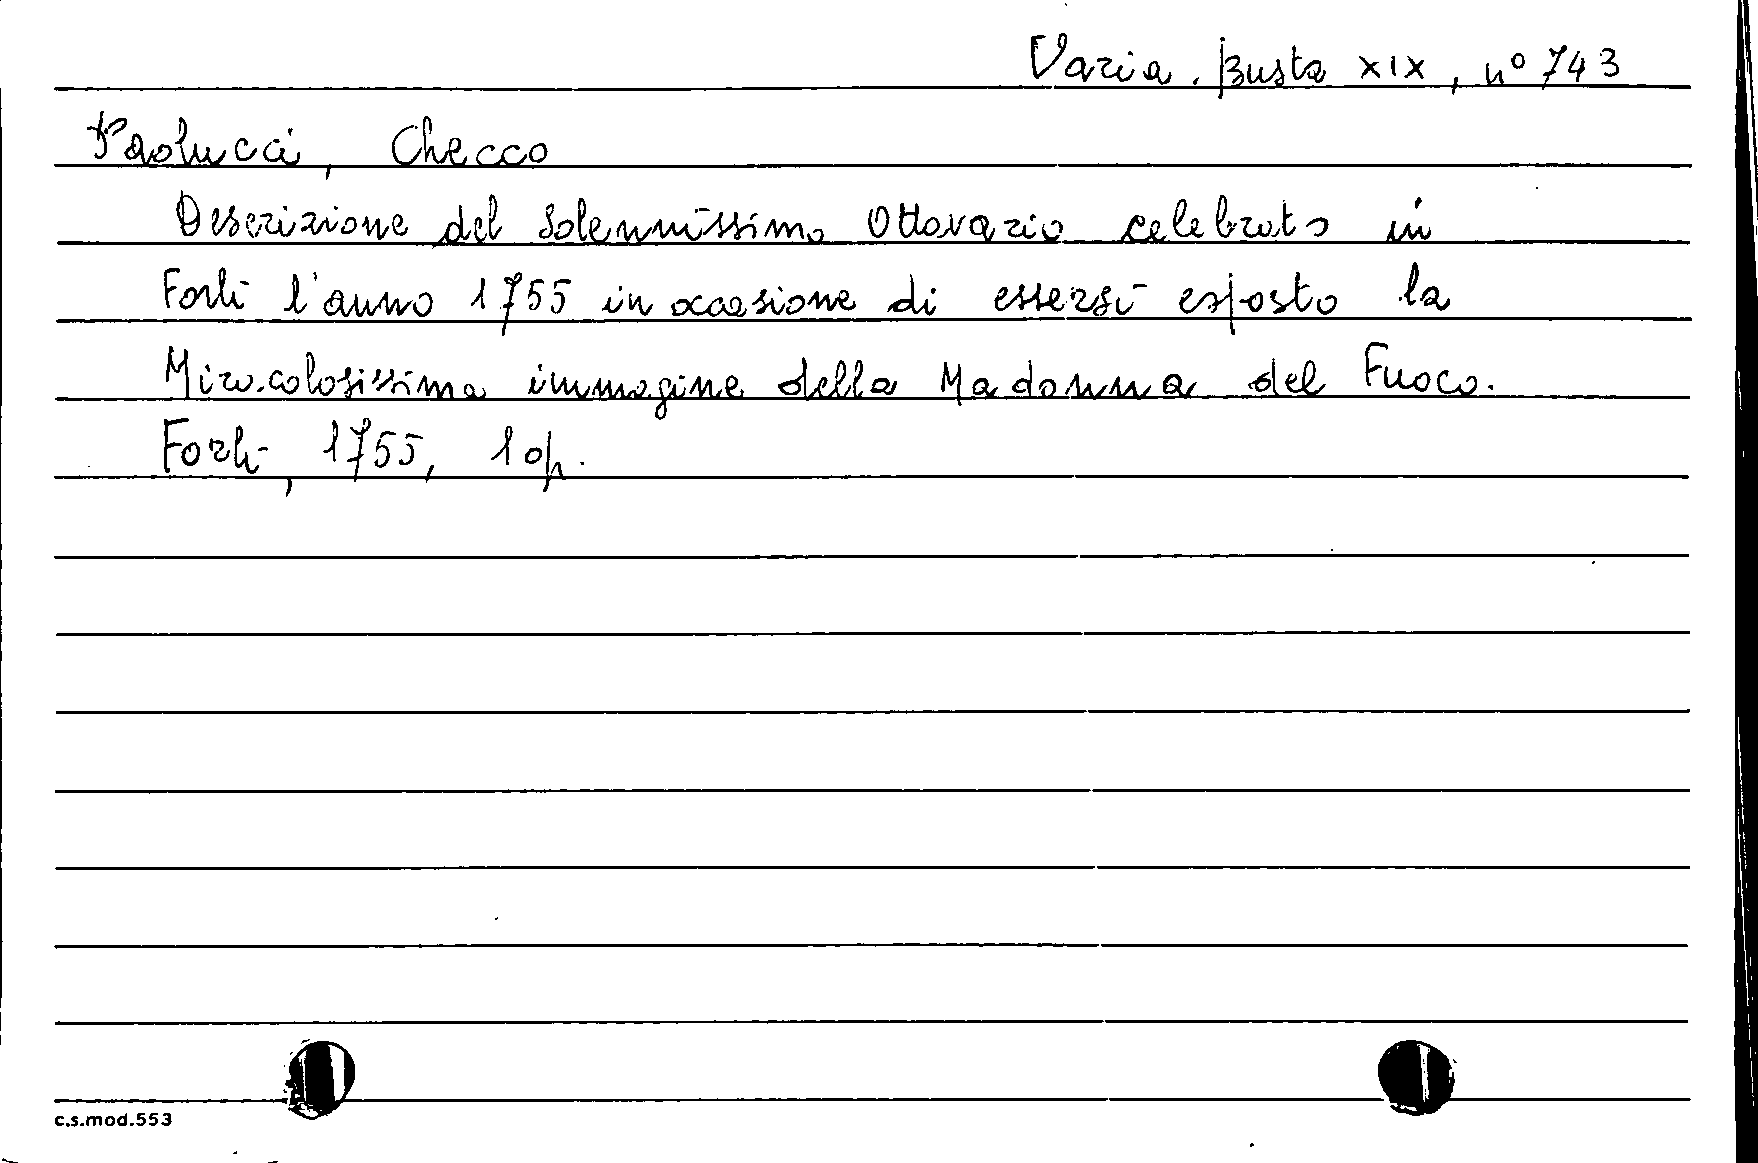 Varia. Busta XIX, n° 743
Paolucci, Checco
Descrizione del solennissimo Ottavario celebrato in
Forlì l'anno 1755 in occasione di essersi esposto la
Miracolosissima immagine della Madonna del Fuoco.
Forlì, 1755, 1 op.
c.s.mod.553